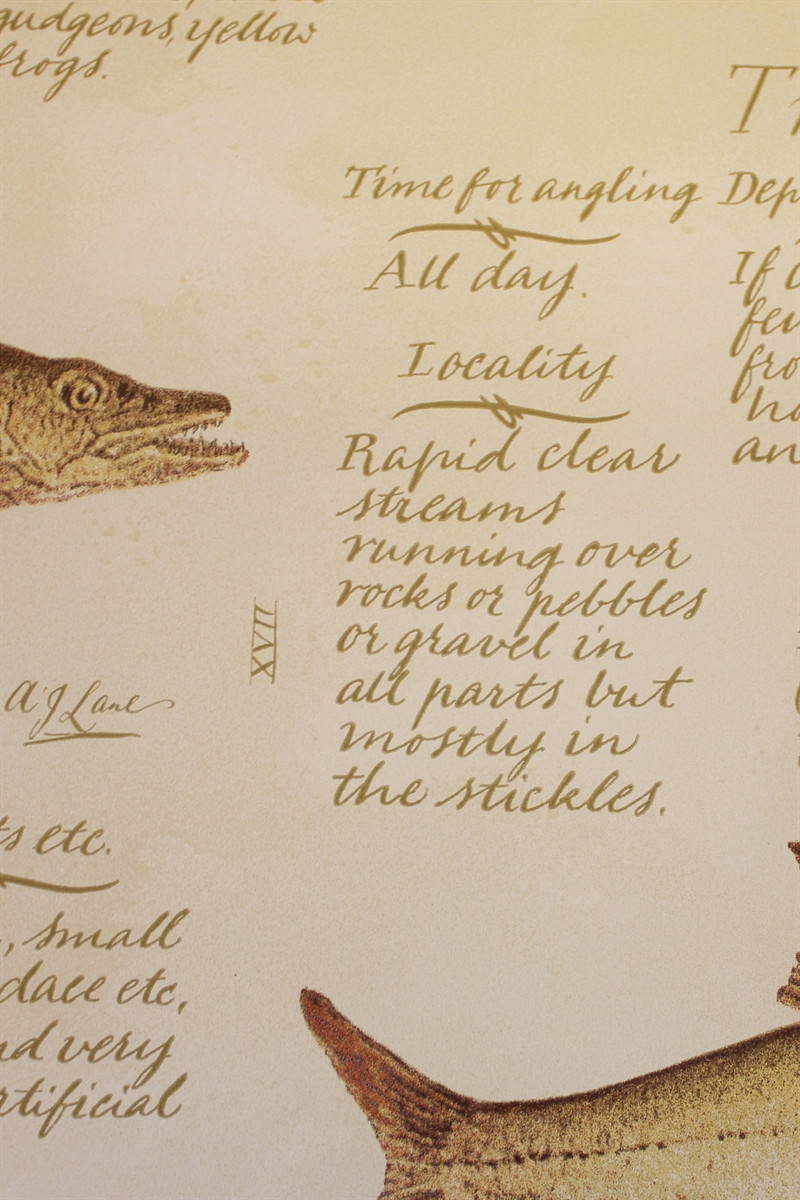 gudgeons, yellow
frogs.
Time for angling
All day.
Locality
Rapid clear
streams
running over
rocks or pebbles
or gravel in
all parts but
mostly in
the stickles.
XVII
A J Lane
etc.
, small
dace etc,
very
If
an